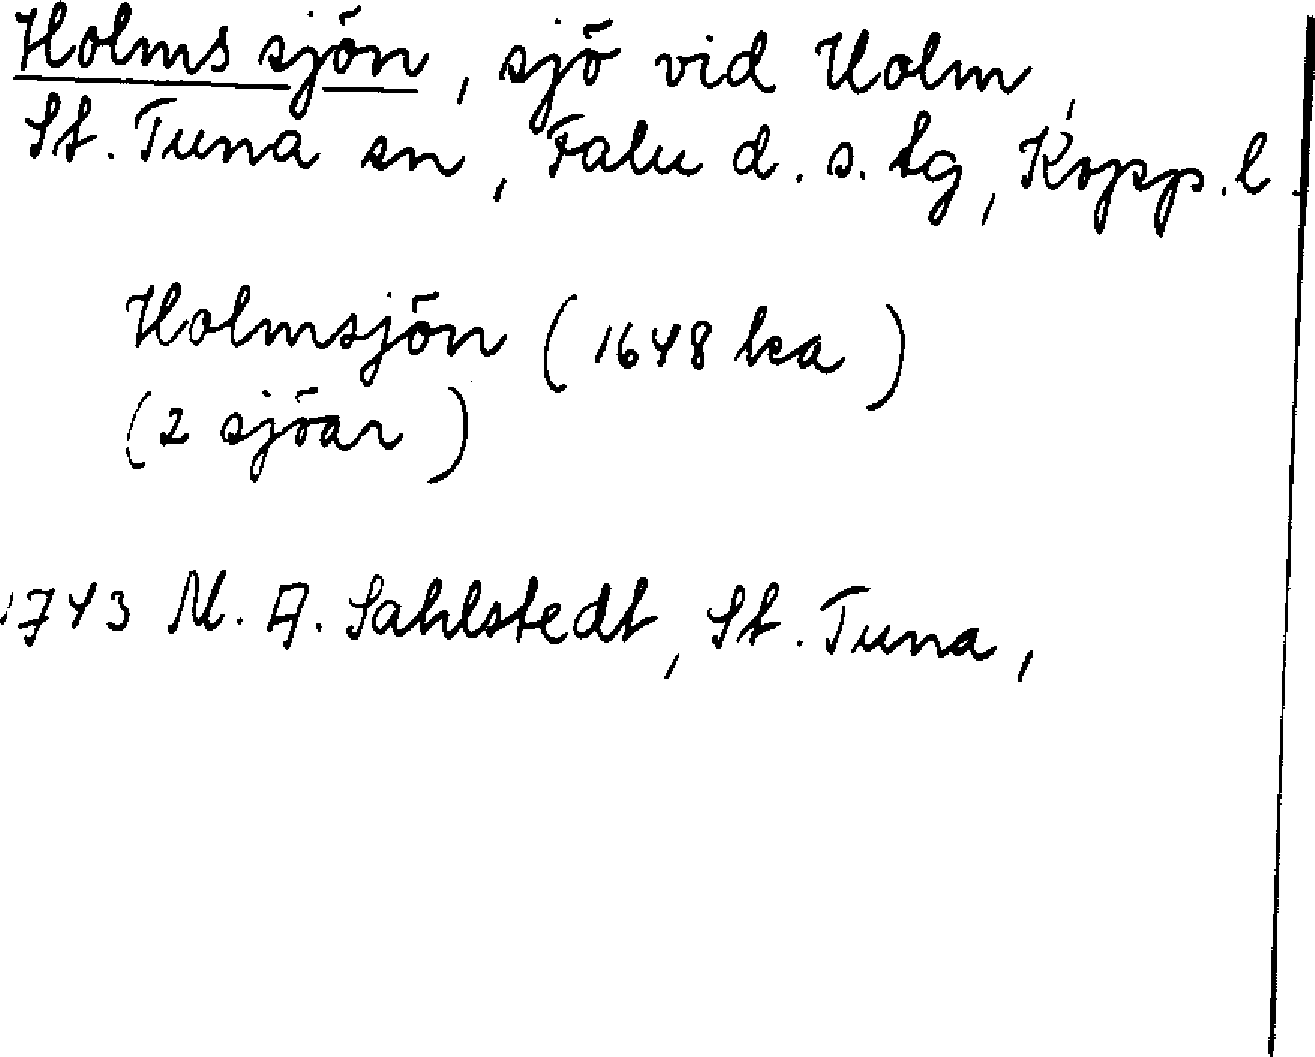 Holms sjön, sjö vid Holm,
St. Tuna sn, Falu d. s. tg, Kopp. l.
Holmsjön (1648 ka)
(2 sjöar)
1743 M. A. Sahlstedt, St. Tuna,